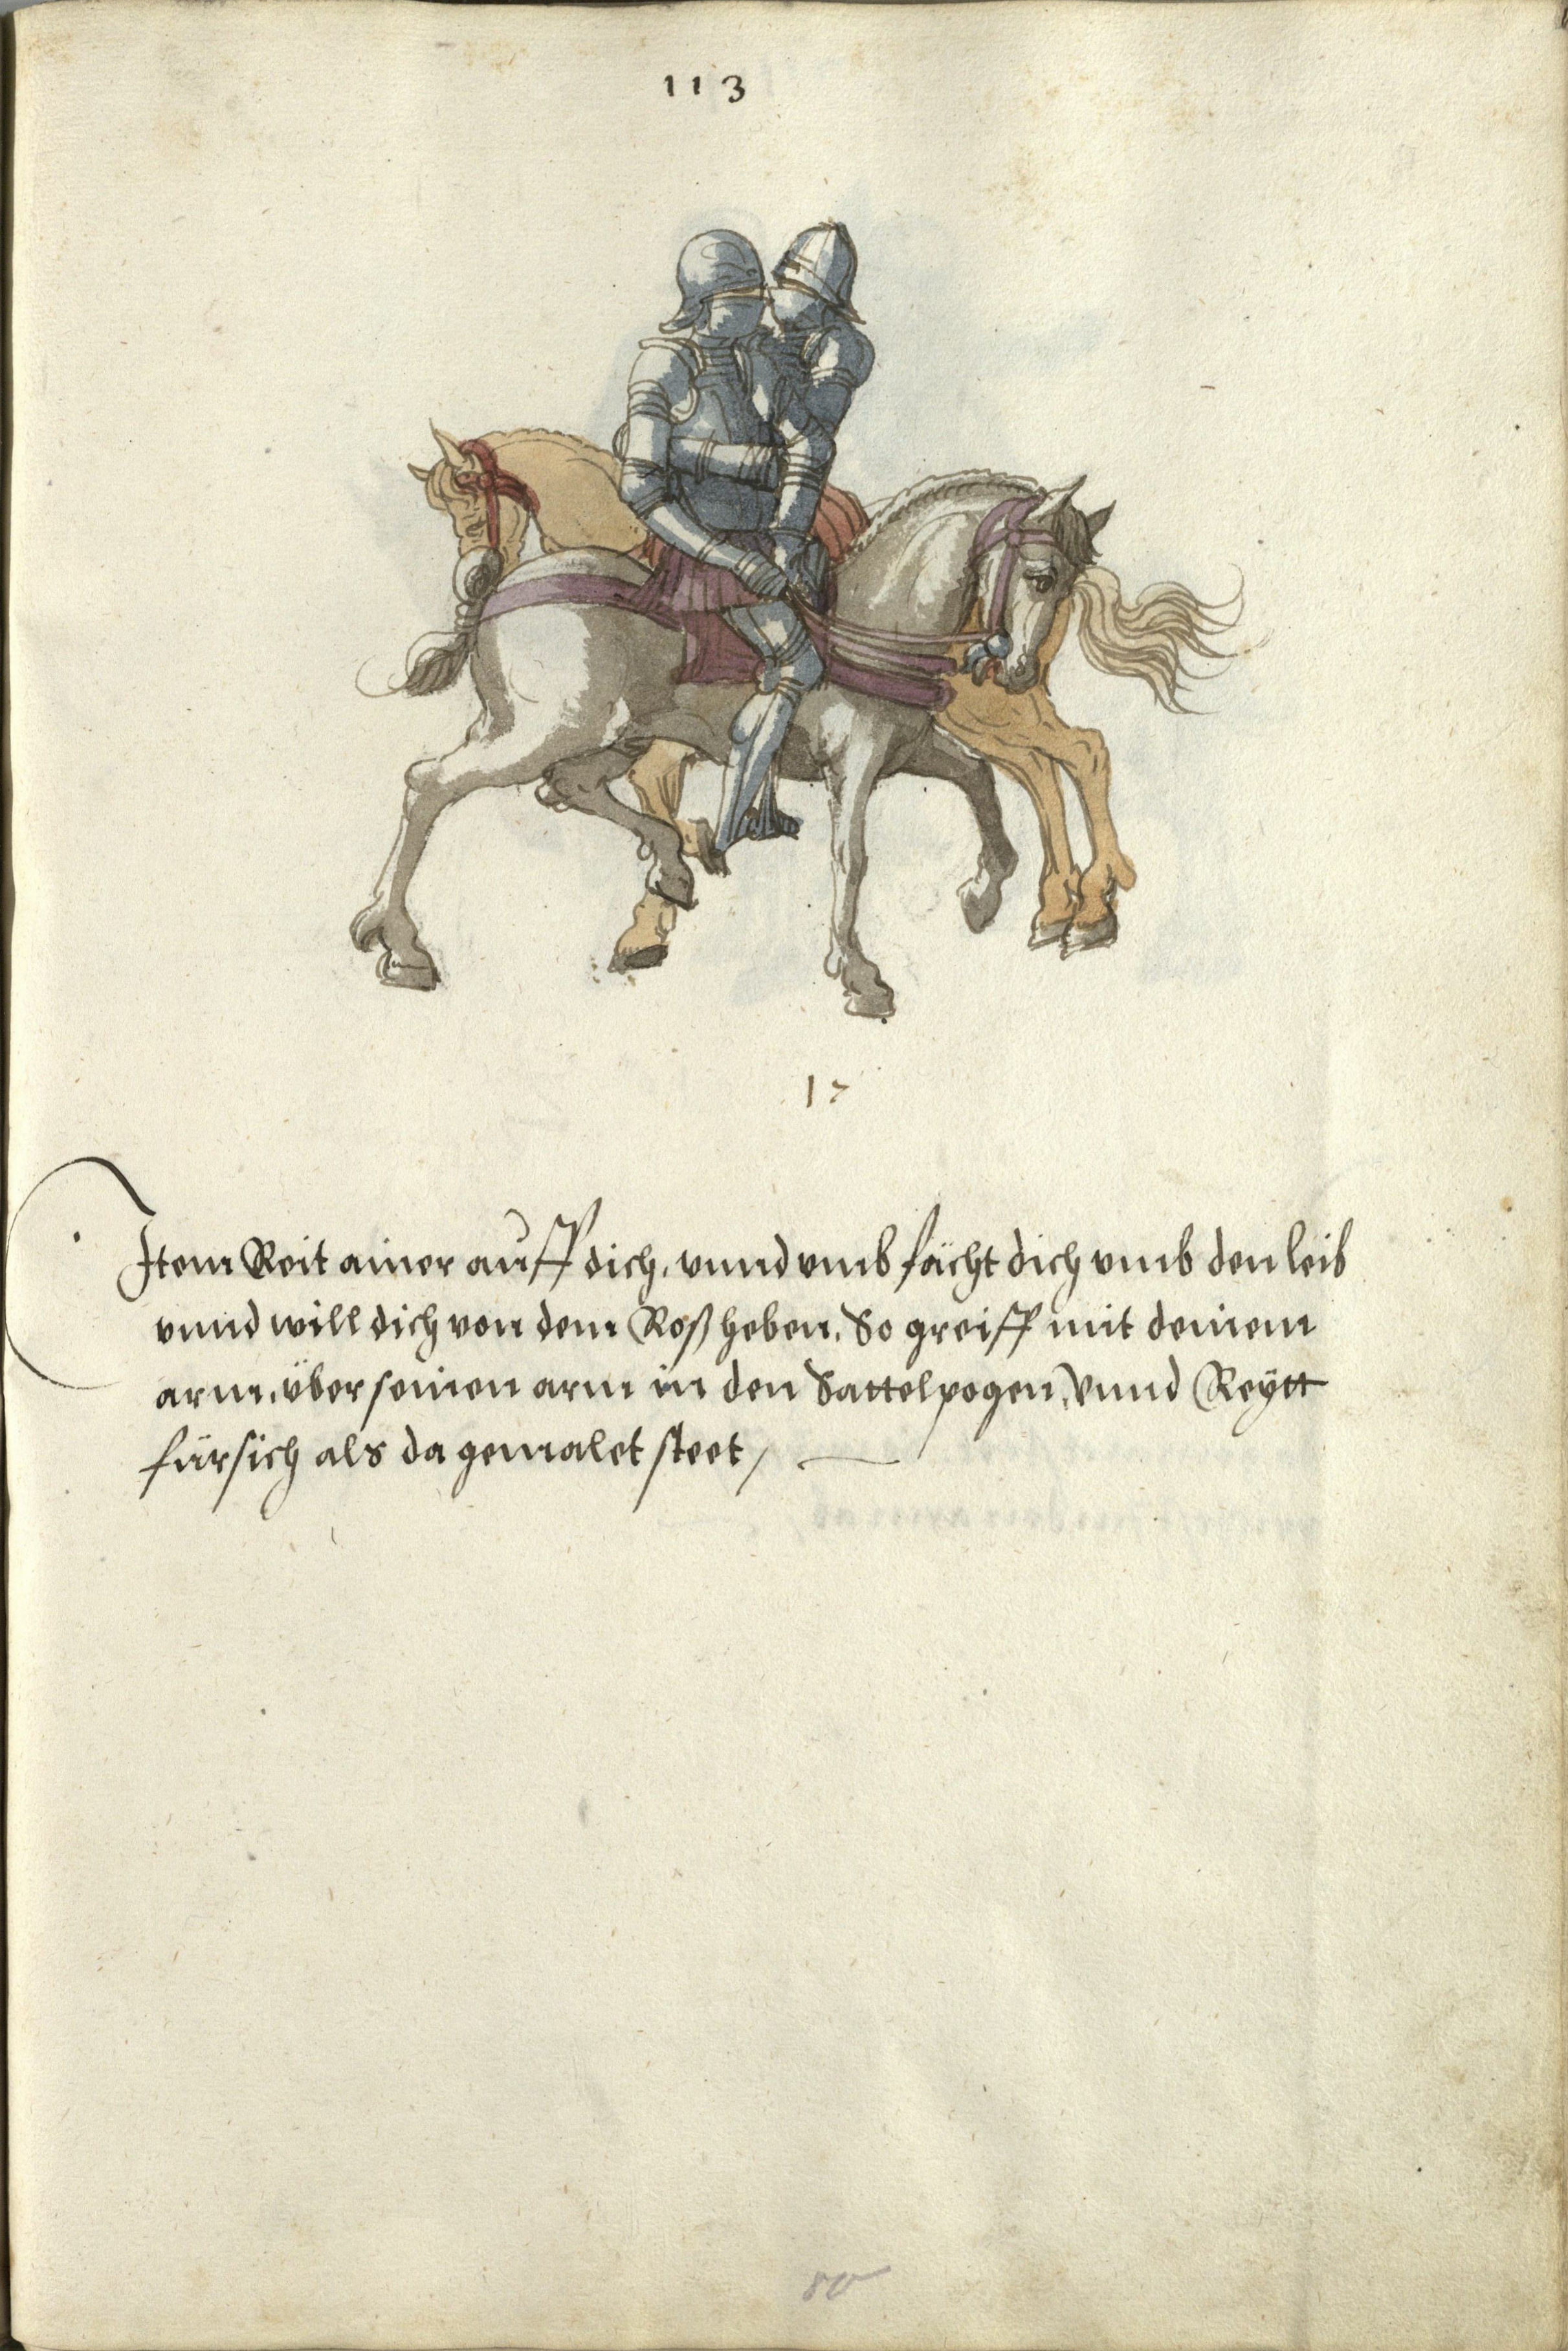 113
17
Item Reit ainer auff dich, vnnd vmb fächt dich vmb den leib
vnnd will dich von dem Roß heben, So greiff mit deinem
arm, über seinen arm in den Sattelpogen, Vnnd Reytt
fürsich als da gemalet steet,